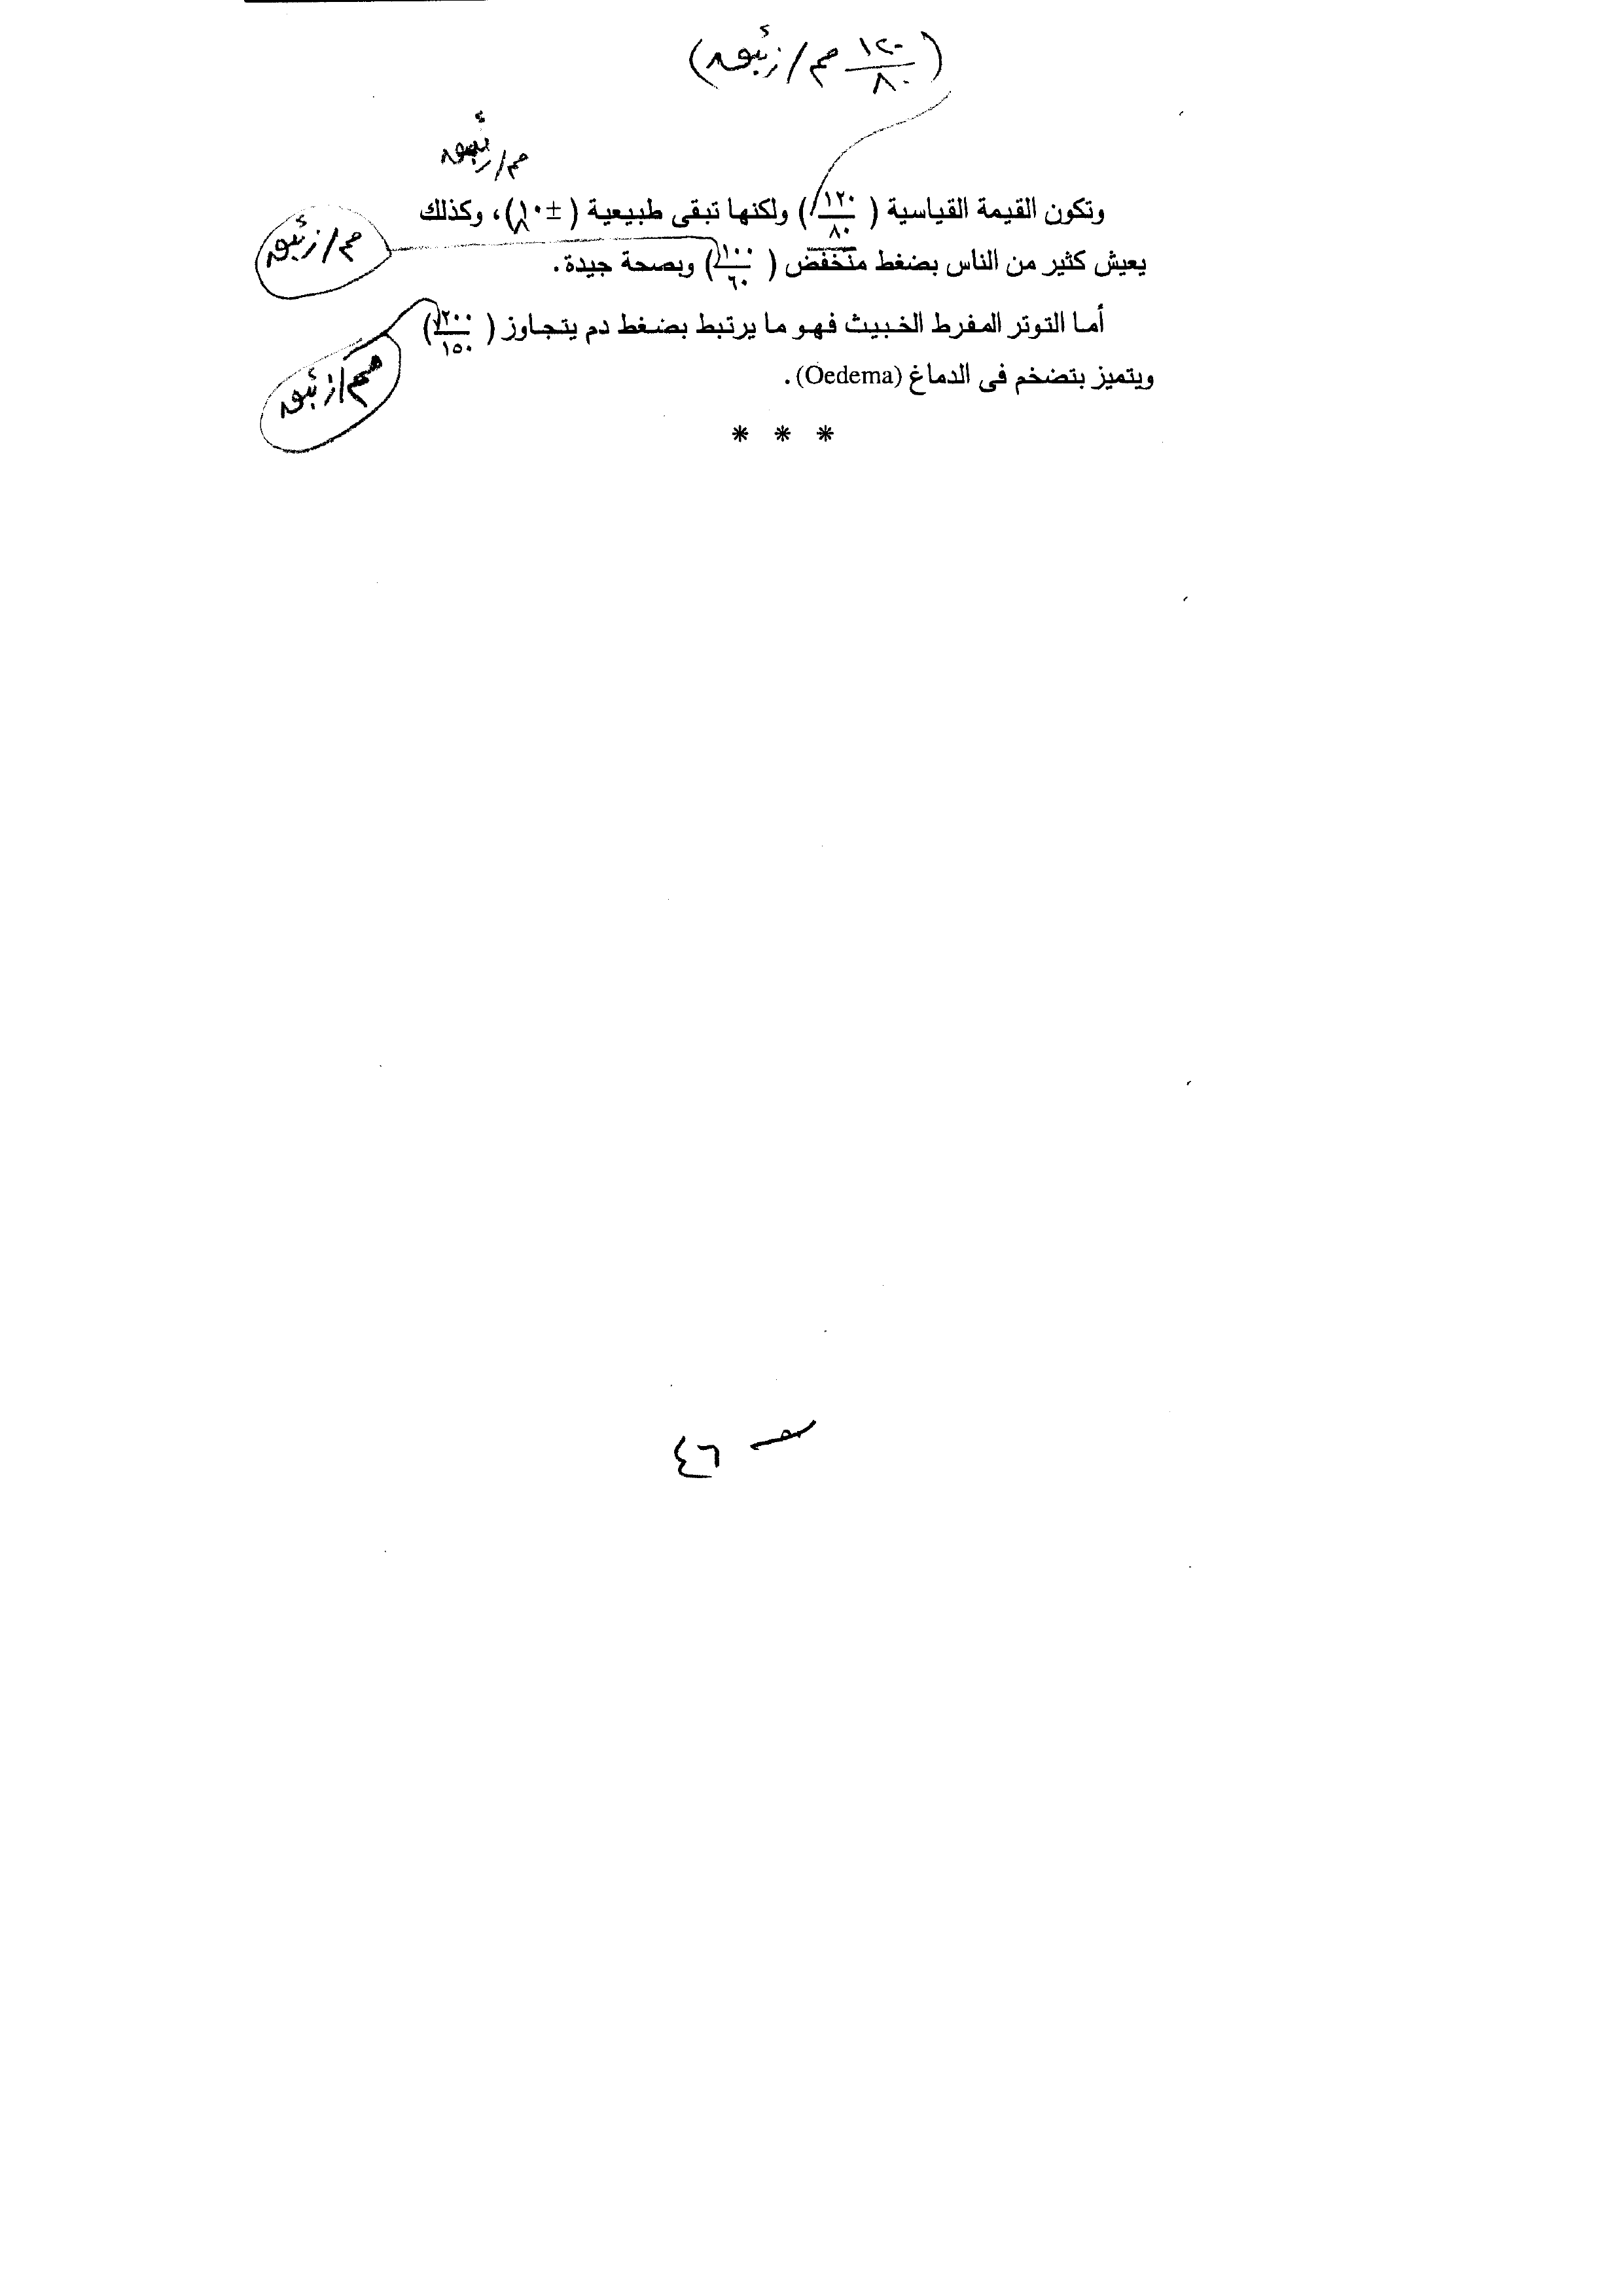 (١٢٠/٨٠ مم/زئبق)
مم/زئبق
وتكون القيمة القياسية (١٢٠/٨٠) ولكنها تبقى طبيعية (±١٠)، وكذلك
مم/زئبق
يعيش كثير من الناس بضغط منخفض (١٠٠/٦٠) وبصحة جيدة.
أما التوتر المفرط الخبيث فهو ما يرتبط بضغط دم يتجاوز (٢٠٠/١٥٠)
مم/زئبق
ويتميز بتضخم فى الدماغ (Oedema).
* * *
صـ ٤٦